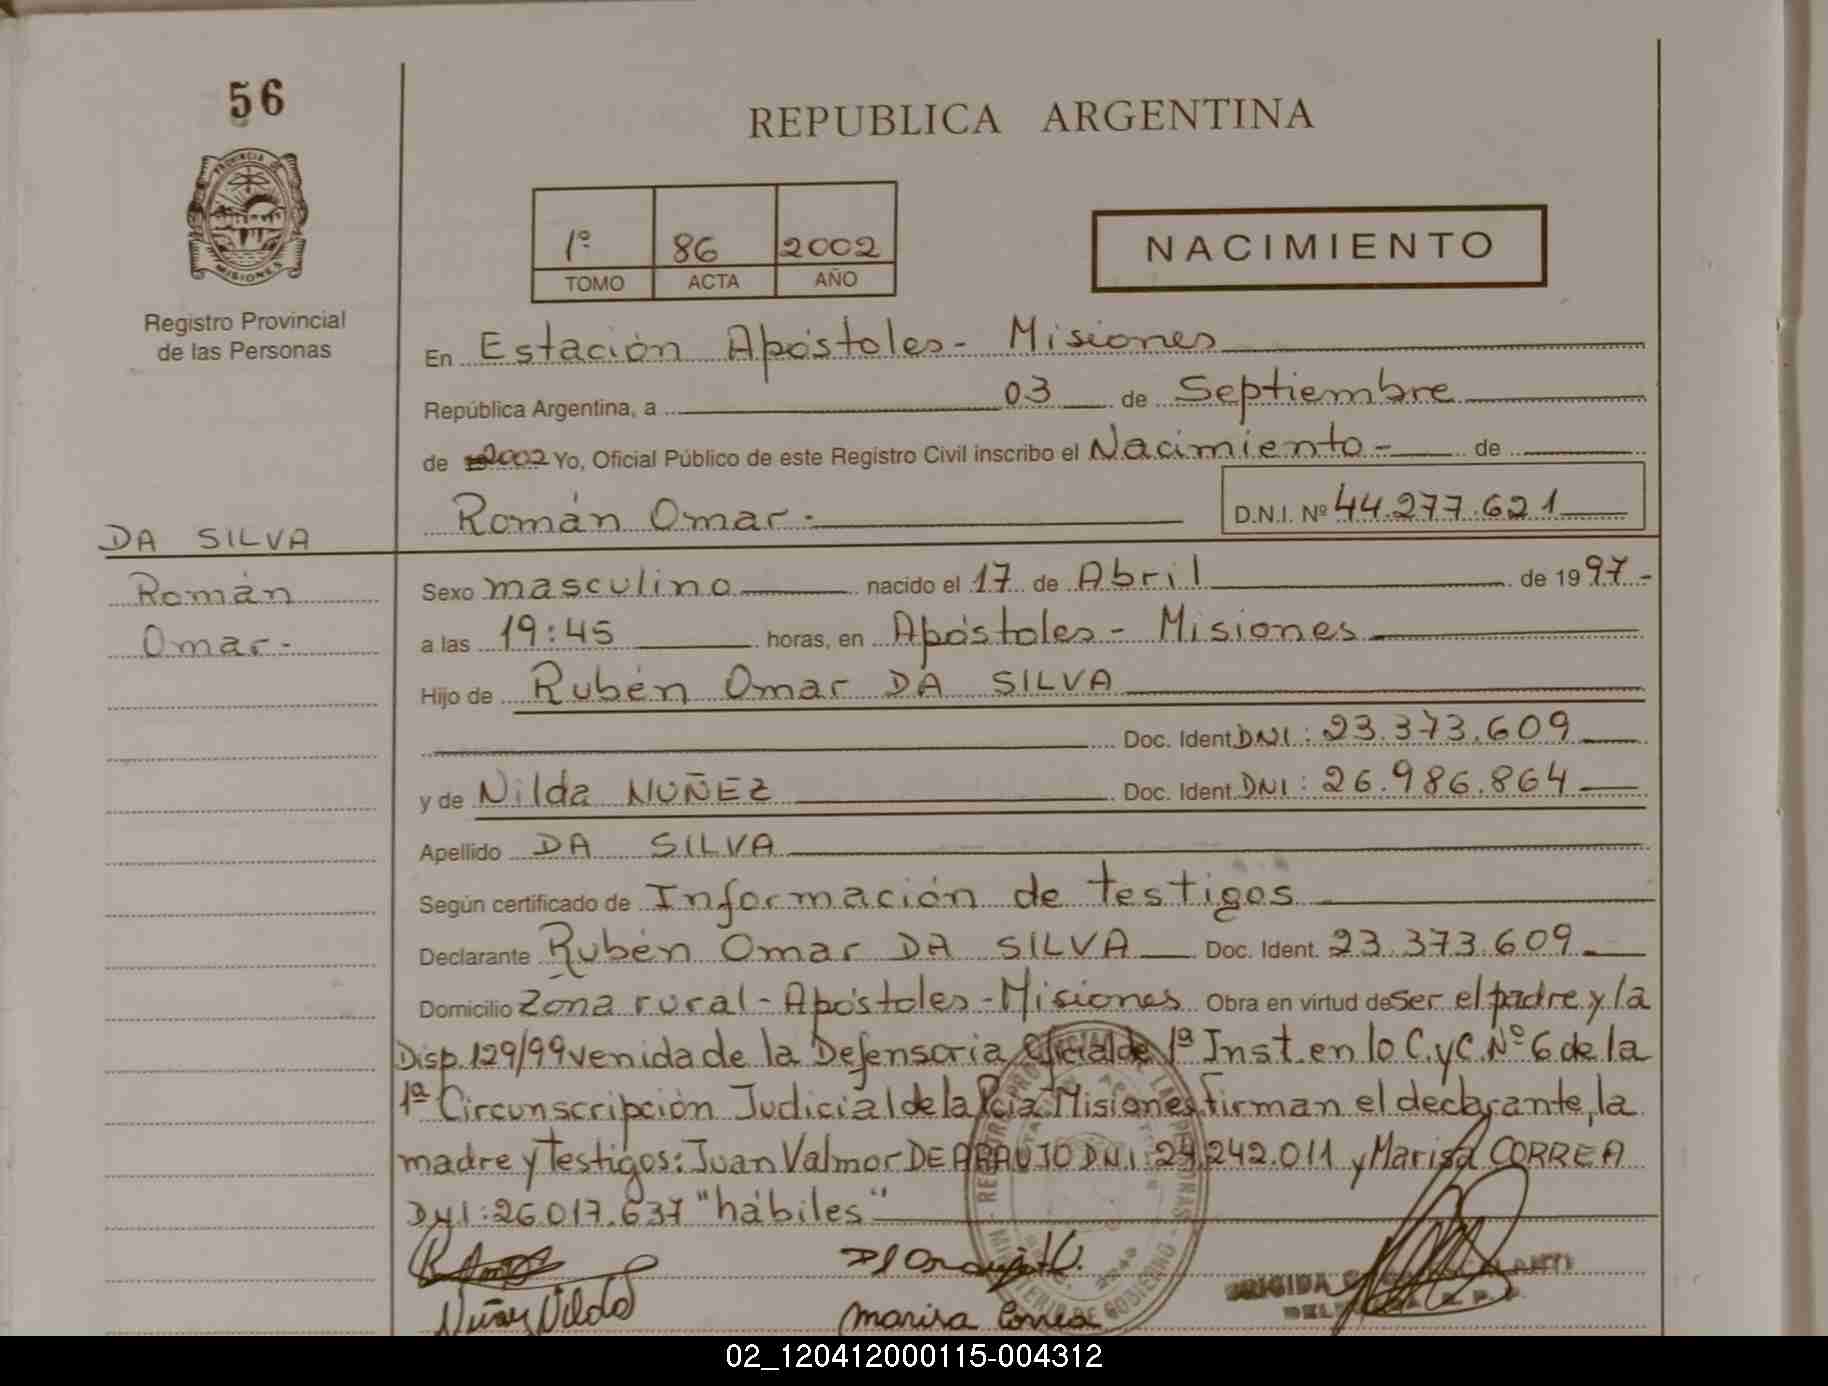 56
REPUBLICA ARGENTINA
PROVINCIA DE
MISIONES
1º 86 2002
TOMO ACTA AÑO
NACIMIENTO
Registro Provincial
de las Personas
En Estación Apóstoles - Misiones
República Argentina, a 03 de Septiembre
de 2002 Yo, Oficial Público de este Registro Civil inscribo el Nacimiento - de
Román Omar - D.N.I. Nº 44.277.621
DA SILVA
Román
Omar -
Sexo masculino nacido el 17 de Abril de 1997 -
a las 19:45 horas, en Apóstoles - Misiones
Hijo de Rubén Omar DA SILVA
Doc. Ident. DNI: 23.373.609
y de Nilda NUÑEZ Doc. Ident. DNI: 26.986.864
Apellido DA SILVA
Según certificado de Información de testigos
Declarante Rubén Omar DA SILVA Doc. Ident. 23.373.609
Domicilio Zona rural - Apóstoles - Misiones Obra en virtud de ser el padre y la
Disp. 129/99 venida de la Defensoria Oficial de 1ª Inst. en lo C. y C. Nº 6 de la
1ª Circunscripción Judicial de la Pcia. Misiones, firman el declarante, la
madre y testigos: Juan Valmor DE ARAUJO DNI: 24.242.011 y Marisa CORREA
DNI: 26.017.637 "hábiles"
Nuñez Nilda
Marisa Correa
02_120412000115-004312